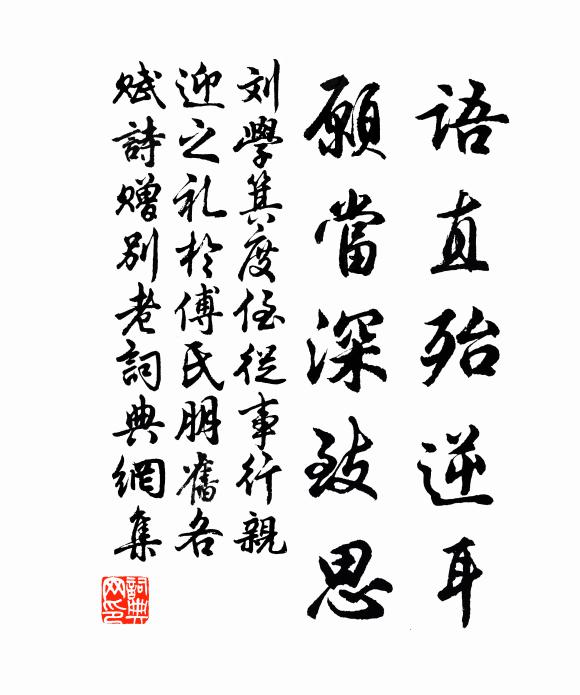 語直殆逆耳
願當深致思
刘學箕度侄從事行親
迎之礼於傅氏朋舊各
赋詩赠别老詞典網集
詞典
网印